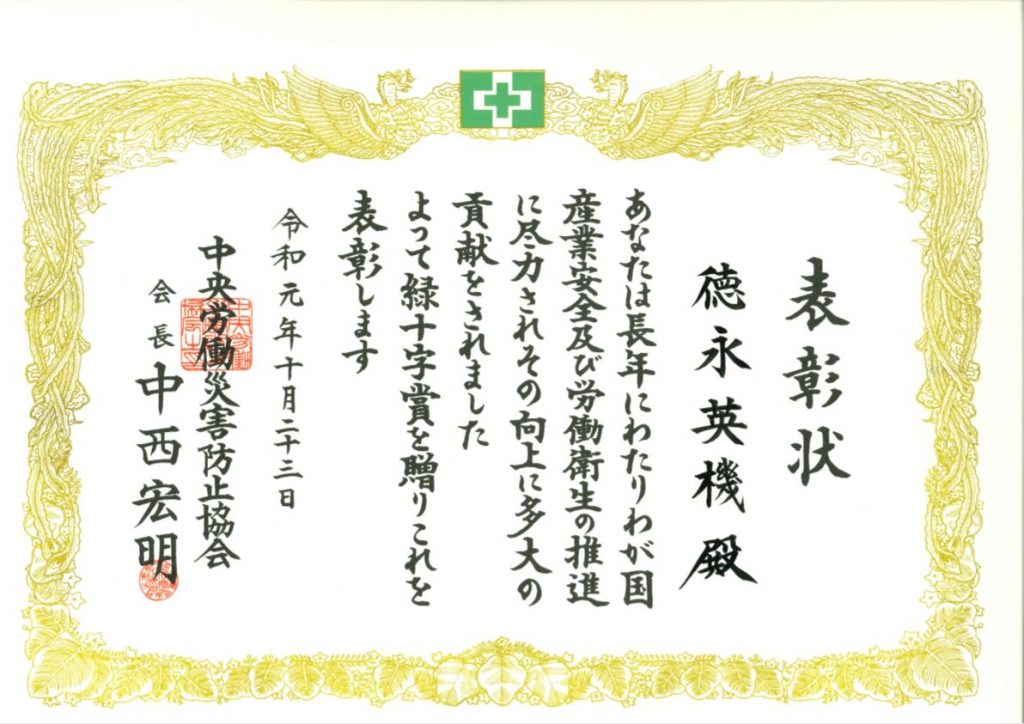 表彰状
徳永英機殿
あなたは長年にわたりわが国
産業安全及び労働衛生の推進
に尽力されその向上に多大の
貢献をされました
よって緑十字賞を贈りこれを
表彰します
令和元年十月二十三日
中央労働災害防止協会
会長 中西宏明